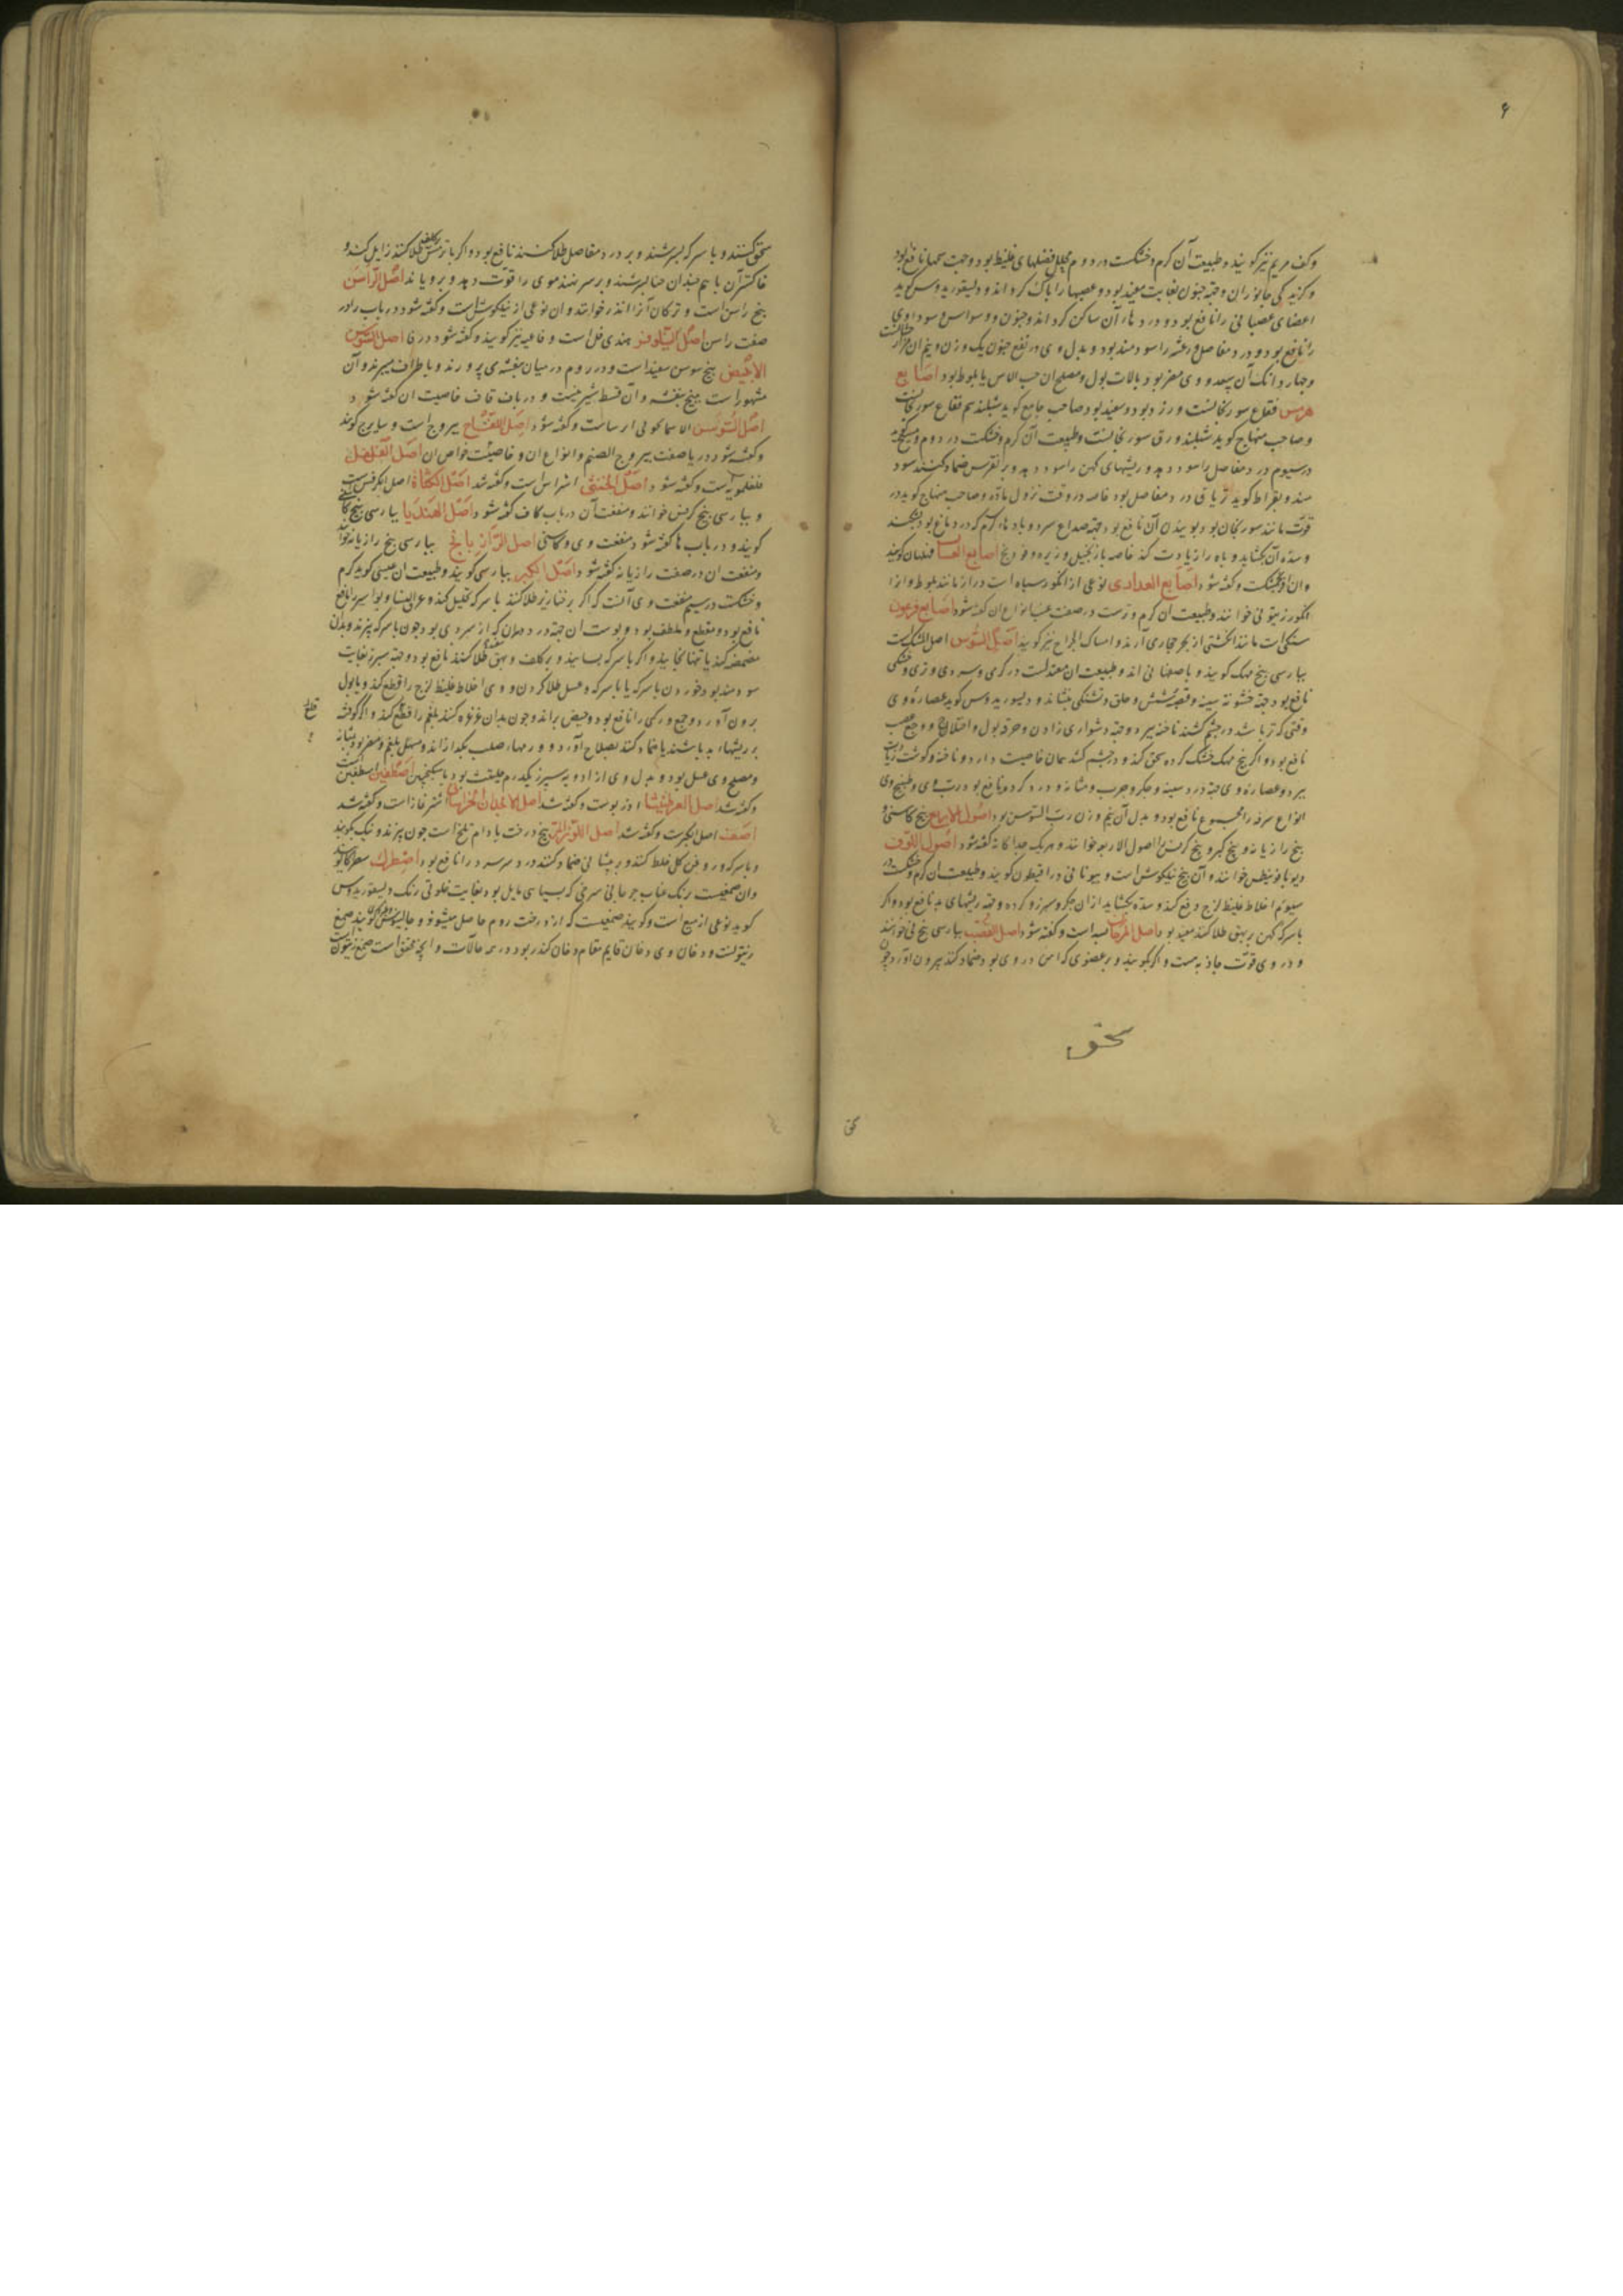 ۶
وکف مریم نیز گویند و طبیعت آن گرم و خشکست در دوم محلل فضلهای غلیظ بود و جهت سهل نافع بود
و گزیدگی جانوران و جهة جنون بغایت مفید بود و عصبها را پاک گرداند و دیسقوریدوس گوید
اعضای عصبانی را نافع بود و دردهاء آن ساکن گرداند و جنون و وسواس سوداوی
را نافع بود و درد مفاصل و رعشه را سودمند بود و بدل وی در نفع جنون یک وزن و نیم آن
و چهار دانگ آن و وی مضر بود بالات بول و مصلح آن حب الاس یا بلوط بود اصابع
هرمس فقاع سورنجانست و زرد بود و سفید بود صاحب جامع گوید شنبلید هم فقاع سورنجانست
و صاحب منهاج گوید شنبلید ورق سورنجانست و طبیعت آن گرم و خشکست در دوم
در سیوم درد مفاصل را سود دهد و ریشهای کهن را سود دهد و بر نقرس ضماد کنند سود
دهد و بقراط گوید تریاقی درد مفاصل بود خاصه در وقت نزول ماده و صاحب منهاج گوید در
قوت مانند سورنجان بود بوییدن آن نافع بود جهة صداع سرد و بادهاء گرم که در دماغ بود
و سده آن بگشاید و باه را زیادت کند خاصه با زنجبیل و زیره و فودنج اصابع الفتیات
و آن فرنجمشکست و گفته شود اصابع العذاری نوعی از انگور سیاه است دراز مانند بلوط و آنرا
انگور زیتونی خوانند و طبیعت آن گرم و ترست در صفت عنب انواع آن گفته شود اصابع فرعون
سنگیست مانند انگشتی از بحر حجاز آرند و امساک الجراح نیز گویند اصل السوس
بپارسی بیخ مهک گویند و باصفهانی اند و طبیعت آن معتدلست در گرمی و سردی و تری و خشکی
نافع بود جهة خشونة سینه و قصبه شش و حلق و تشنگی بنشاند و دیسقوریدوس گوید عصاره وی
وقتی که تر باشد در چشم کشند ناخنه ببرد و جهة دشواری زادن و حرقة بول و اختلاج و وجع عصب
نافع بود و اگر بیخ مهک خشک کرده سحق کند و در چشم کشد همان خاصیت دارد و ناخنه و گوشت زیادت
ببرد و عصاره وی جهة درد سینه و جگر و جرب و مثانه و درد گرده نافع بود و رب وی و طبیخ وی
انواع سرفه را مجموع نافع بود و بدل آن نیم وزن رب السوس بود اصول الاربعه بیخ کاسنی و
بیخ رازیانه و بیخ کبر و بیخ کرفس را اصول الاربعه خوانند و هر یک جداگانه گفته شود اصول اللوف
خوانند و آن بیخ فیلگوش است و بیونانی دراقیطون گویند و طبیعت آن گرم و خشکست در
سیوم اخلاط غلیظ لزج دفع کند و سده بگشاید از آن جگر و سپرز و گرده و جهة ریشهای بد نافع بود و اگر
با سرکه کهن بر بهق طلا کنند مفید بود اصل المرجان بسد است و گفته شود اصل القصب بپارسی بیخ نی خوانند
و در وی قوت جاذبه هست و اگر بکوبند و بر عضوی که آهن در وی بود ضماد کنند بیرون آورد و چون
سحق
سحق کنند و با سرکه بسرشند و بر درد مفاصل طلا کنند نافع بود و اگر با ترمس بر کلف طلا کنند زایل کند و
خاکستر آن با هم چندان حنا بسرشند و بر سر نهند موی را قوت دهد و برویاند اصل الراسن
بیخ راسن است و ترکان آنرا اندز خوانند و آن نوعی از فیلگوش است و گفته شود در باب را در
صفت راسن اصل النیلوفر هندی فل است و فاغیه نیز گویند و گفته شود در فا اصل السوسن
الابیض بیخ سوسن سفید است و در روم در میان بنفشه می پرورند و باطراف میبرند و آن
مشهور است ببیخ بنفشه و آن قسط شیرینست و در باب قاف خاصیت آن گفته شود
اصل السوسن الاسمانجونی ایرساست و گفته شود اصل اللفاح یبروج است و سابیزج گویند
و گفته شود در یا صفت یبروج الصنم و انواع آن و خاصیت خواص آن اصل الفلفل
فلفلمویه است و گفته شود اصل الخنثی اشراس است و گفته شد اصل الکرفس است
و بپارسی بیخ کرفس خوانند و منفعت آن در باب کاف گفته شود اصل الهندبا بپارسی بیخ کاسنی
گویند و در باب ها گفته شود منفعت وی و کاسنی اصل الرازیانج بپارسی بیخ رازیانه خوانند
و منفعت آن در صفت رازیانه گفته شود اصل الکبر بپارسی گویند و طبیعت آن عیسی گوید گرم
و خشکست در سیم منفعت وی آنست که اگر بر خنازیر طلا کنند با سرکه تحلیل کند و عرق النسا و بواسیر را نافع
نافع بود و مقطع و ملطف بود و پوست آن جهة درد دندان که از سردی بود چون با سرکه بپزند و بدان
مضمضه کنند یا تنها بخایند و اگر با سرکه بسایند و بر کلف و بهق سفید طلا کنند نافع بود و جهة سپرز بغایت
سودمند بود خوردن با سرکه یا با سرکه و عسل طلا کردن و وی اخلاط غلیظ لزج را قطع کند و با بول
برون آورد و وجع ورکی را نافع بود و حیض براند و چون بدان غرغره کنند بلغم را قطع کند و اگر کوفته
بر ریشهاء بد باشند یا ضماد کنند بصلاح آورد و ورمهاء صلب بگدازاند و مسهل بلغم و مضر بود بمثانه
و مصلح وی عسل بود و بدل وی از ادویه سپرز یکدرم بود با سکنجبین اصطفین اسطفین است
و گفته شد اصل العرطنیثا و گفته شد اصل الانجدان الخراسانی اشترغاز است و گفته شد
اصف اصل الکبرست و گفته شد اصل اللوز المر بیخ درخت بادام تلخ است چون بپزند و نیک بکوبند
و با سرکه و روغن گل خلط کنند و بر پیشانی ضماد کنند درد سر سرد را نافع بود اصطرک
و آن صمغیست برنگ عناب چرمانی سرخی که بسیاهی مایل بود بغایت خلوقی رنگ دیسقوریدوس
گوید نوعی از میعه است و گویند صمغیست که از درخت روم حاصل میشود و جالینوس گوید صمغ
زیتونست و دخان وی دخان قایم مقام دخان کندر بود در همه حالات و آنچه محقق است صمغ زیتونست